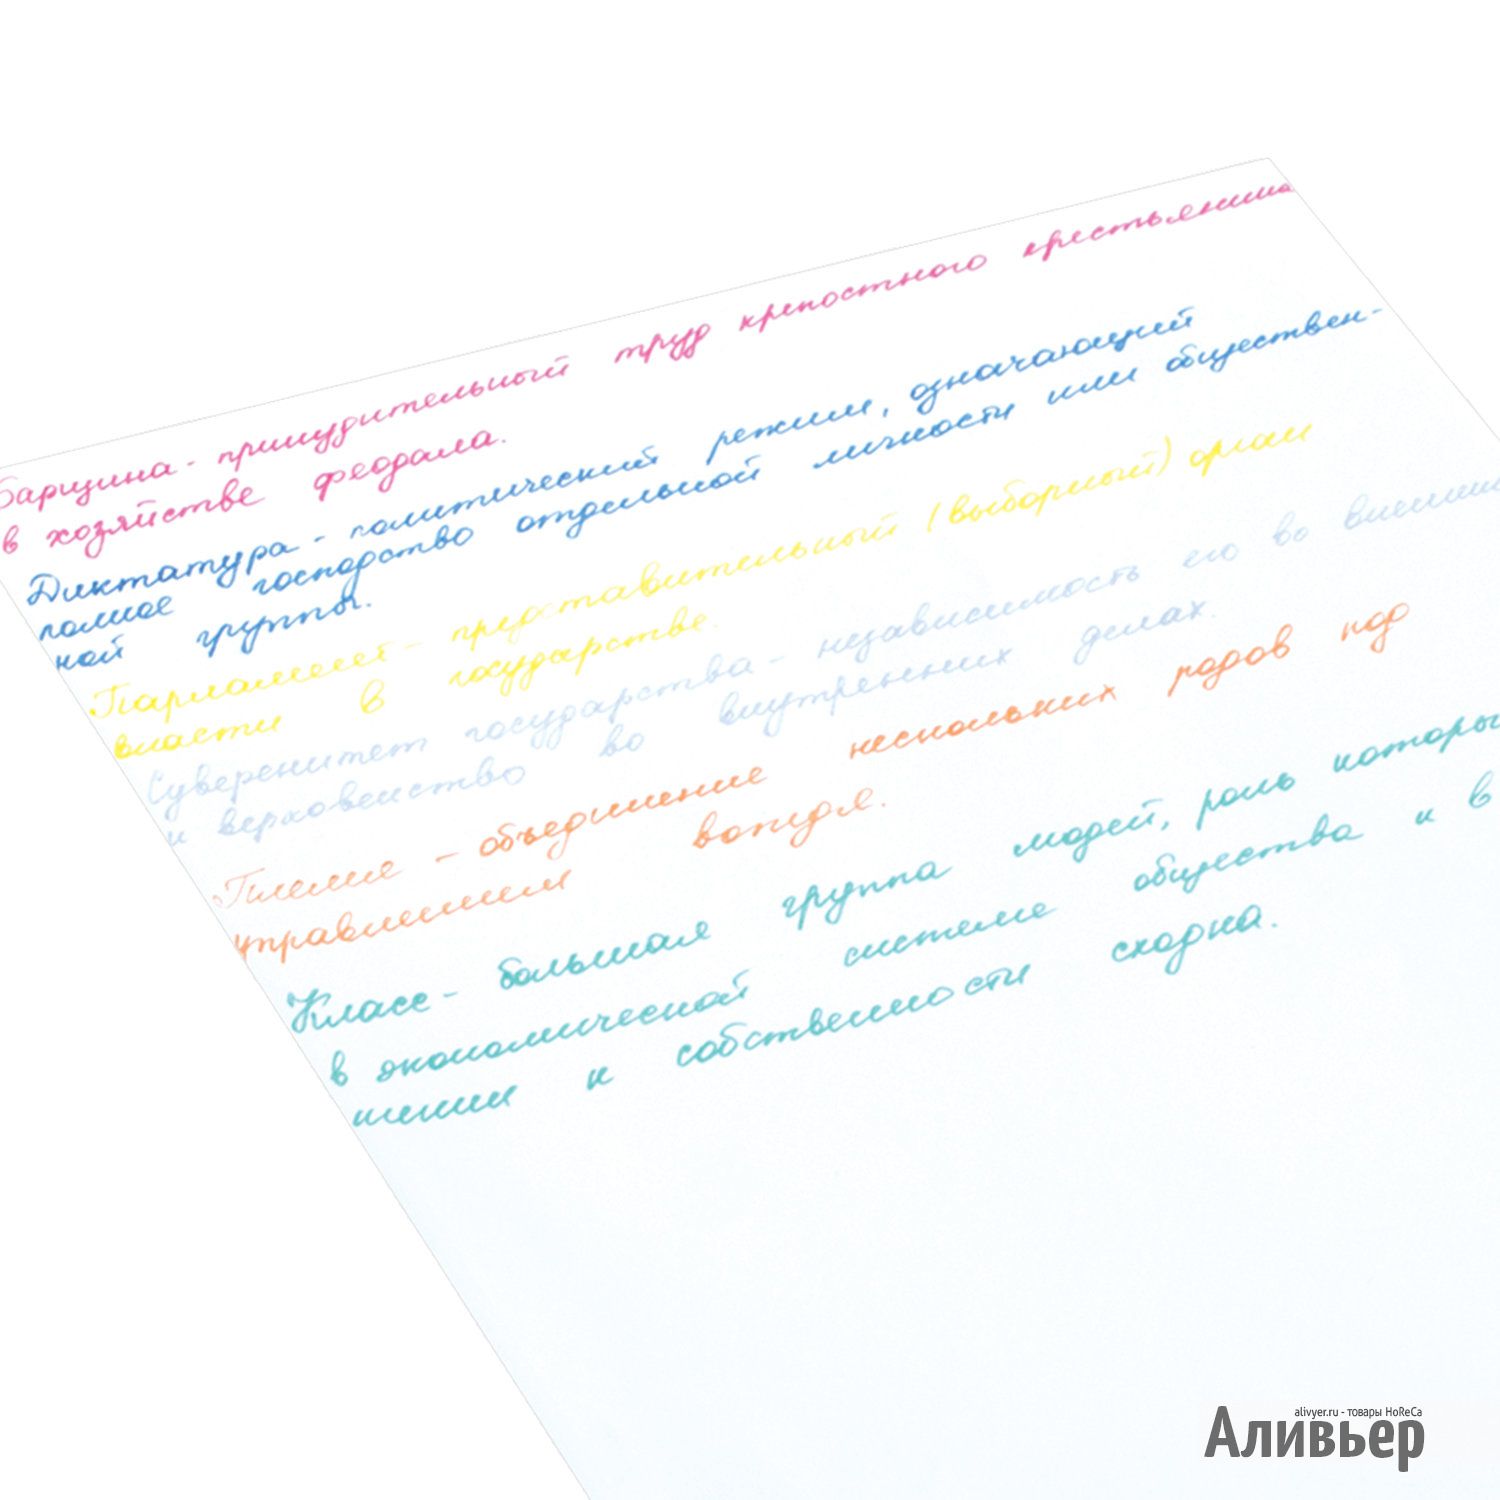 Барщина - принудительный труд крепостного крестьянина
в хозяйстве феодала.
Диктатура - политический режим, означающий
полное господство отдельной личности или обществен-
ной группы.
Парламент - представительный (выборный) орган
власти в государстве.
Суверенитет государства - независимость его во внешних
и верховенство во внутренних делах.
Племя - объединение нескольких родов под
управлением вождя.
Класс - большая группа людей, роль которых
в экономической системе общества и в
шении к собственности сходна.
alivyer.ru - товары HoReCa
Аливьер